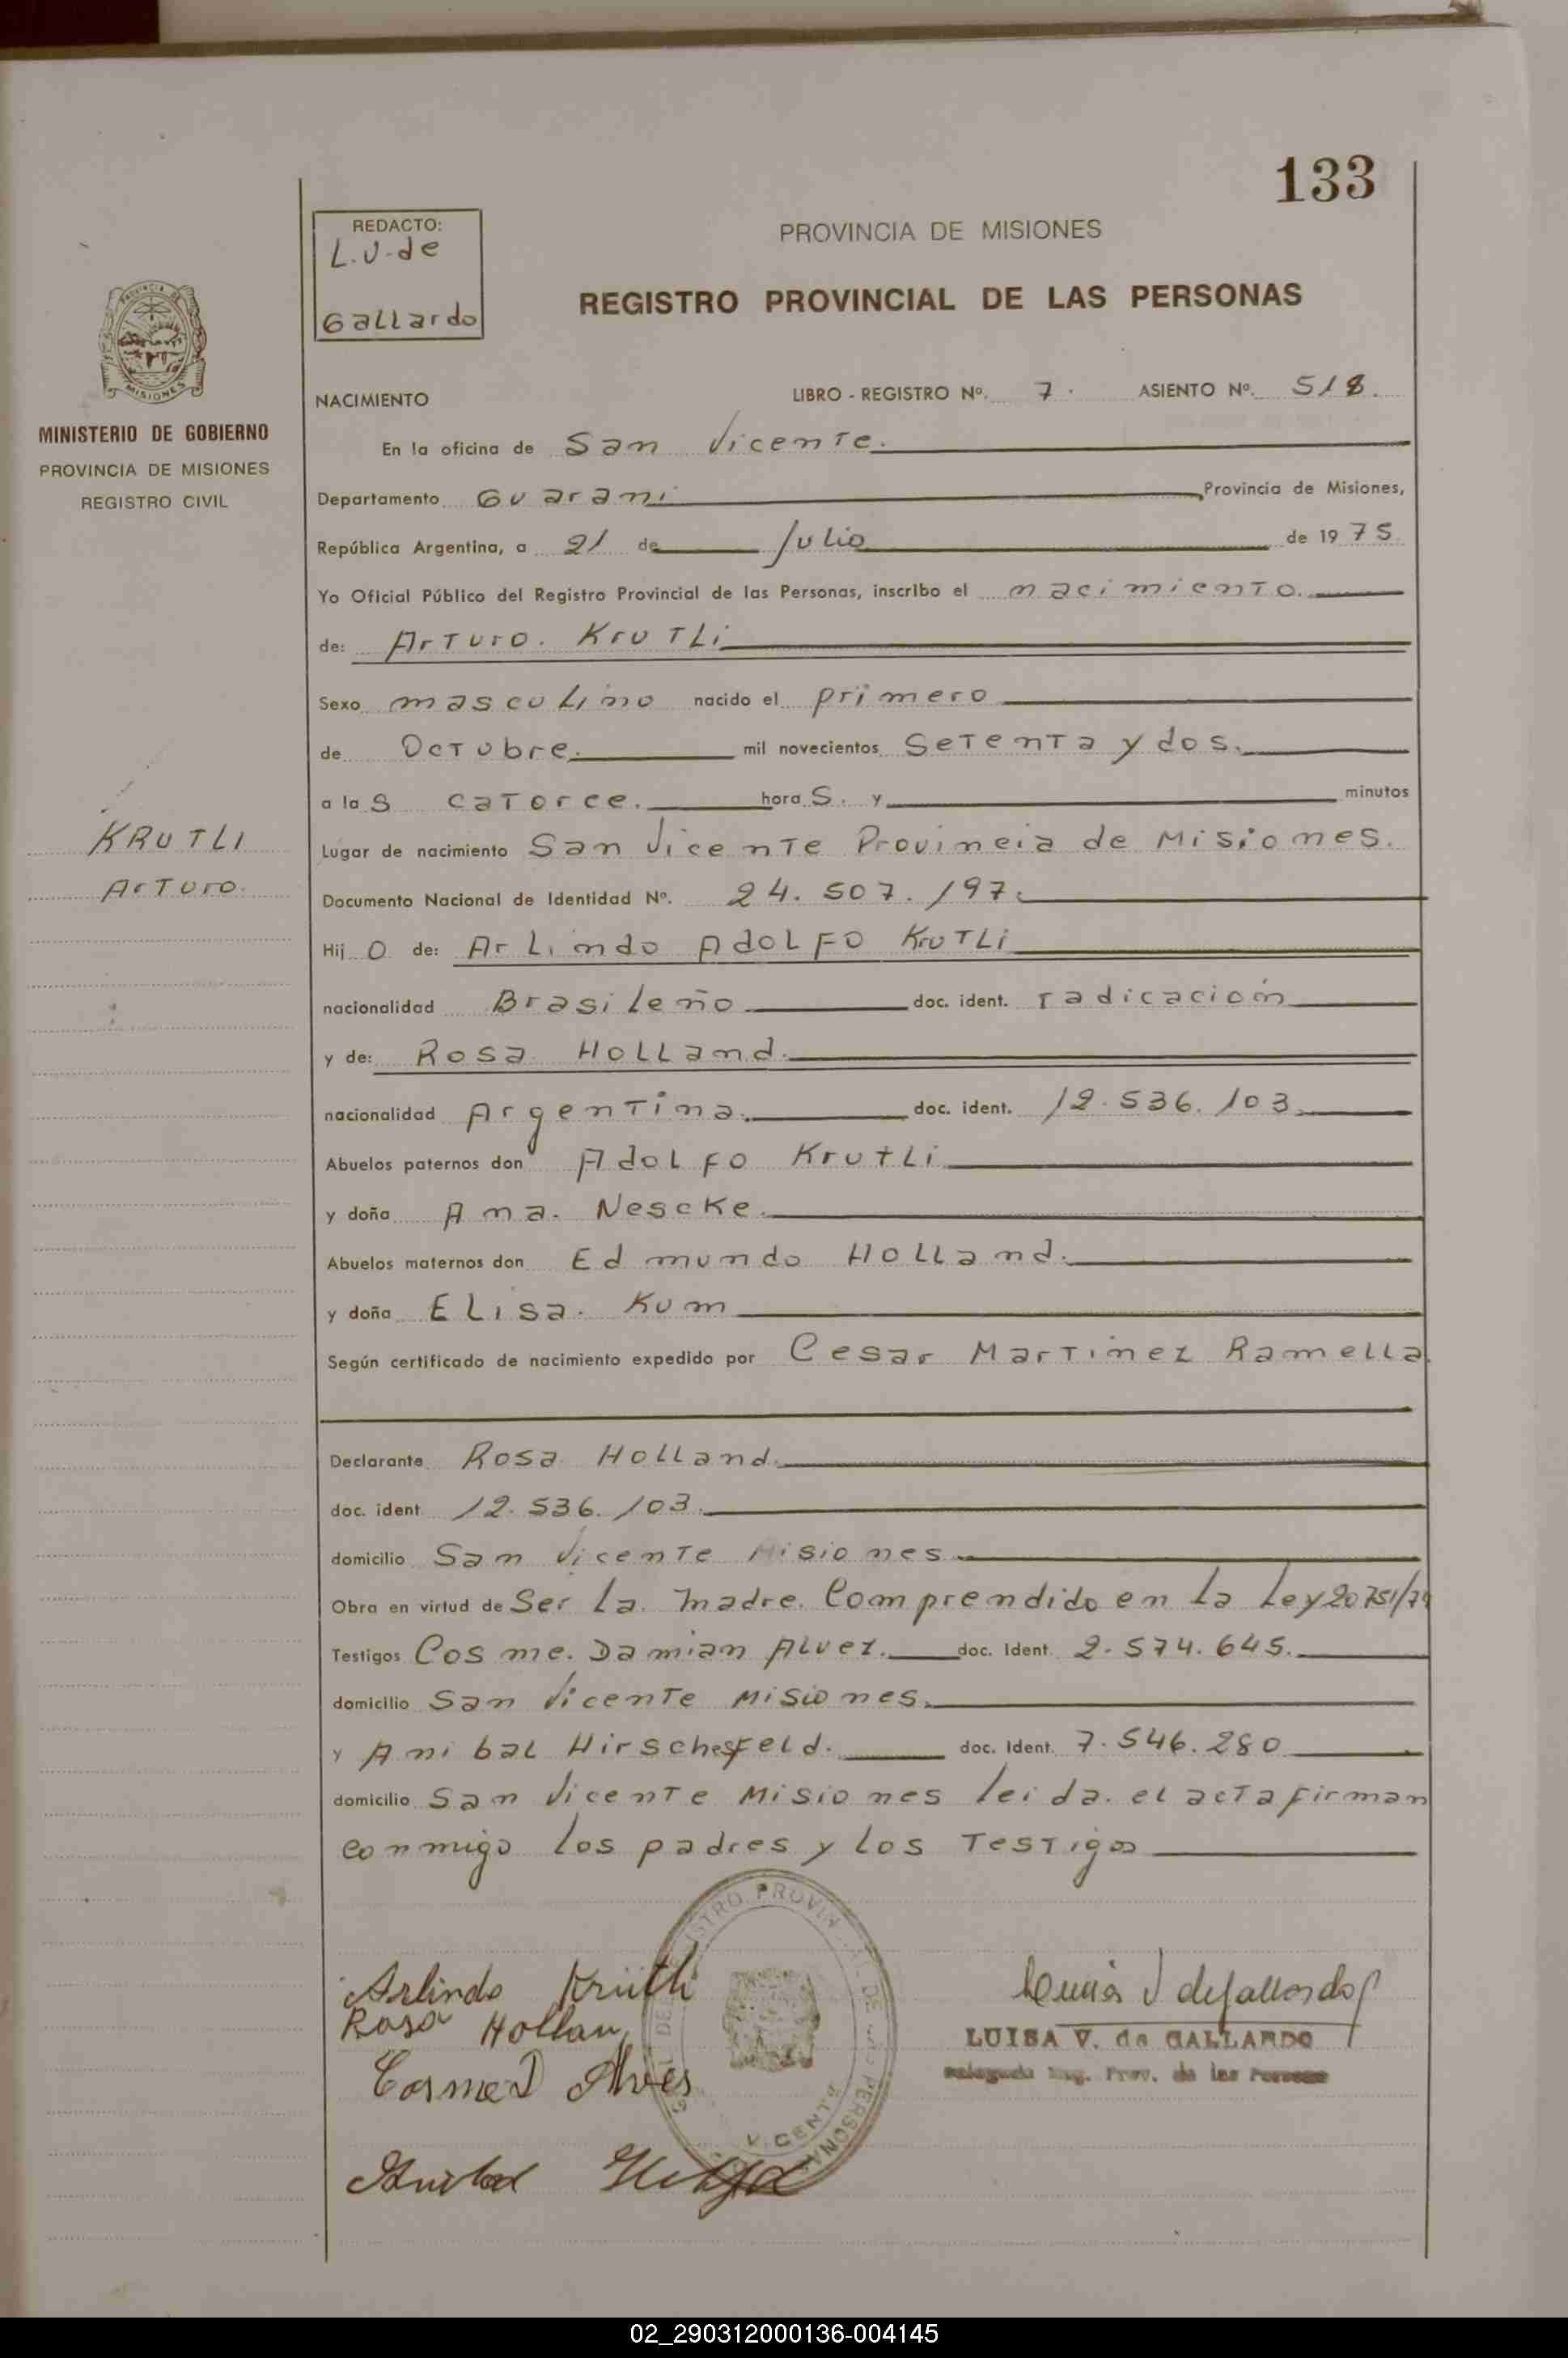 133
REDACTO:
L.V. de
Gallardo
PROVINCIA DE MISIONES
REGISTRO PROVINCIAL DE LAS PERSONAS
PROVINCIA DE
MISIONES
MINISTERIO DE GOBIERNO
PROVINCIA DE MISIONES
REGISTRO CIVIL
NACIMIENTO LIBRO - REGISTRO Nº. 7. ASIENTO Nº. 518.
En la oficina de San Vicente.
Departamento Guarani Provincia de Misiones,
República Argentina, a 21 de Julio de 1975
Yo Oficial Público del Registro Provincial de las Personas, inscribo el nacimiento.
de: Arturo. Krutli
Sexo masculino nacido el primero
de Octubre. mil novecientos Setenta y dos.
a las catorce. horas. y minutos
KRUTLI
Arturo.
Lugar de nacimiento San Vicente Provincia de Misiones.
Documento Nacional de Identidad Nº. 24.507.197.
Hijo de: Arlindo Adolfo Krutli
nacionalidad Brasileño doc. ident. radicación
y de: Rosa Holland.
nacionalidad Argentina. doc. ident. 12.536.103.
Abuelos paternos don Adolfo Krutli
y doña Ana. Nescke.
Abuelos maternos don Edmundo Holland.
y doña Elisa. Kum
Según certificado de nacimiento expedido por Cesar Martinez Ramella.
Declarante Rosa Holland.
doc. ident 12.536.103.
domicilio San Vicente Misiones.
Obra en virtud de Ser la madre. Comprendido en la Ley 20751/74
Testigos Cosme. Damian Alvez. doc. Ident. 2.574.645.
domicilio San Vicente Misiones.
y Anibal Hirschesfeld. doc. Ident. 7.546.280
domicilio San Vicente Misiones leida. el acta firman
conmigo los padres y los Testigos
Arlindo Krütli
Rosa Hollan
Cosme D Alves
Anibal
LUISA V. de GALLARDO
Delegada Reg. Prov. de las Personas
02_290312000136-004145